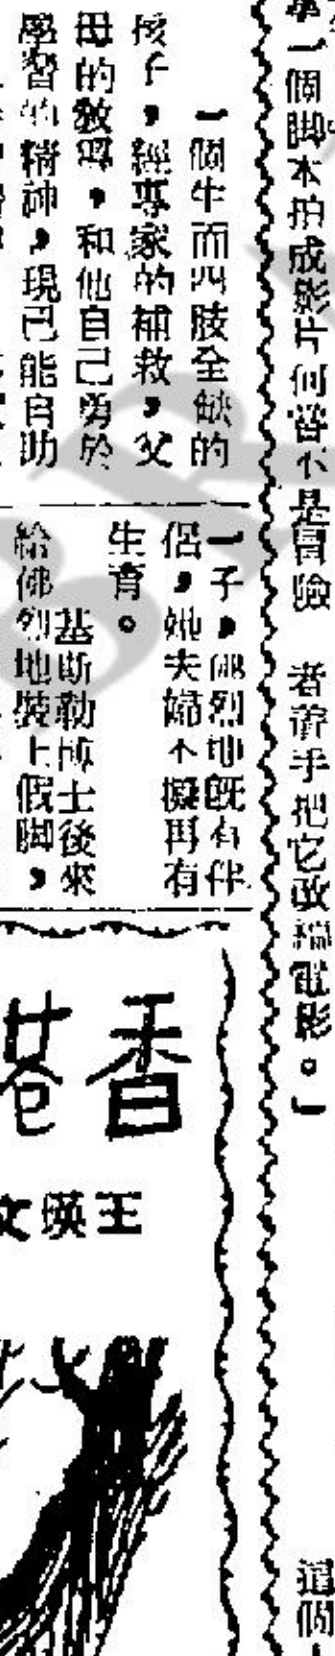 一個脚本拍成影片何嘗不是冒險
者着手把它改編電影。」
這個
一個生而四肢全缺的
孩子，經專家的補救，父
母的教導，和他自己勇於
學習的精神，現已能自助
一子，佛烈地既有伴
侶，她夫婦不擬再有
生育。
基斯勒博士後來
給佛烈地裝上假脚，
香
王瑛文